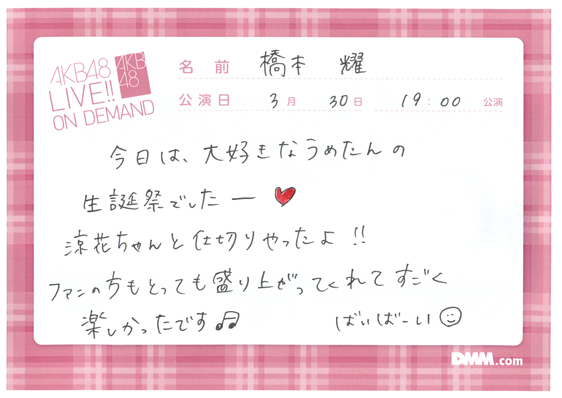 AKB48
LIVE!!
ON DEMAND
AKB
48
名前 橋本 耀
公演日 3月 30日 19:00 公演
今日は、大好きなうめたんの
生誕祭でしたー
涼花ちゃんと仕切りやったよ!!
ファンの方もとっても盛り上がってくれてすごく
楽しかったです♫
ばいばーい
DMM.com